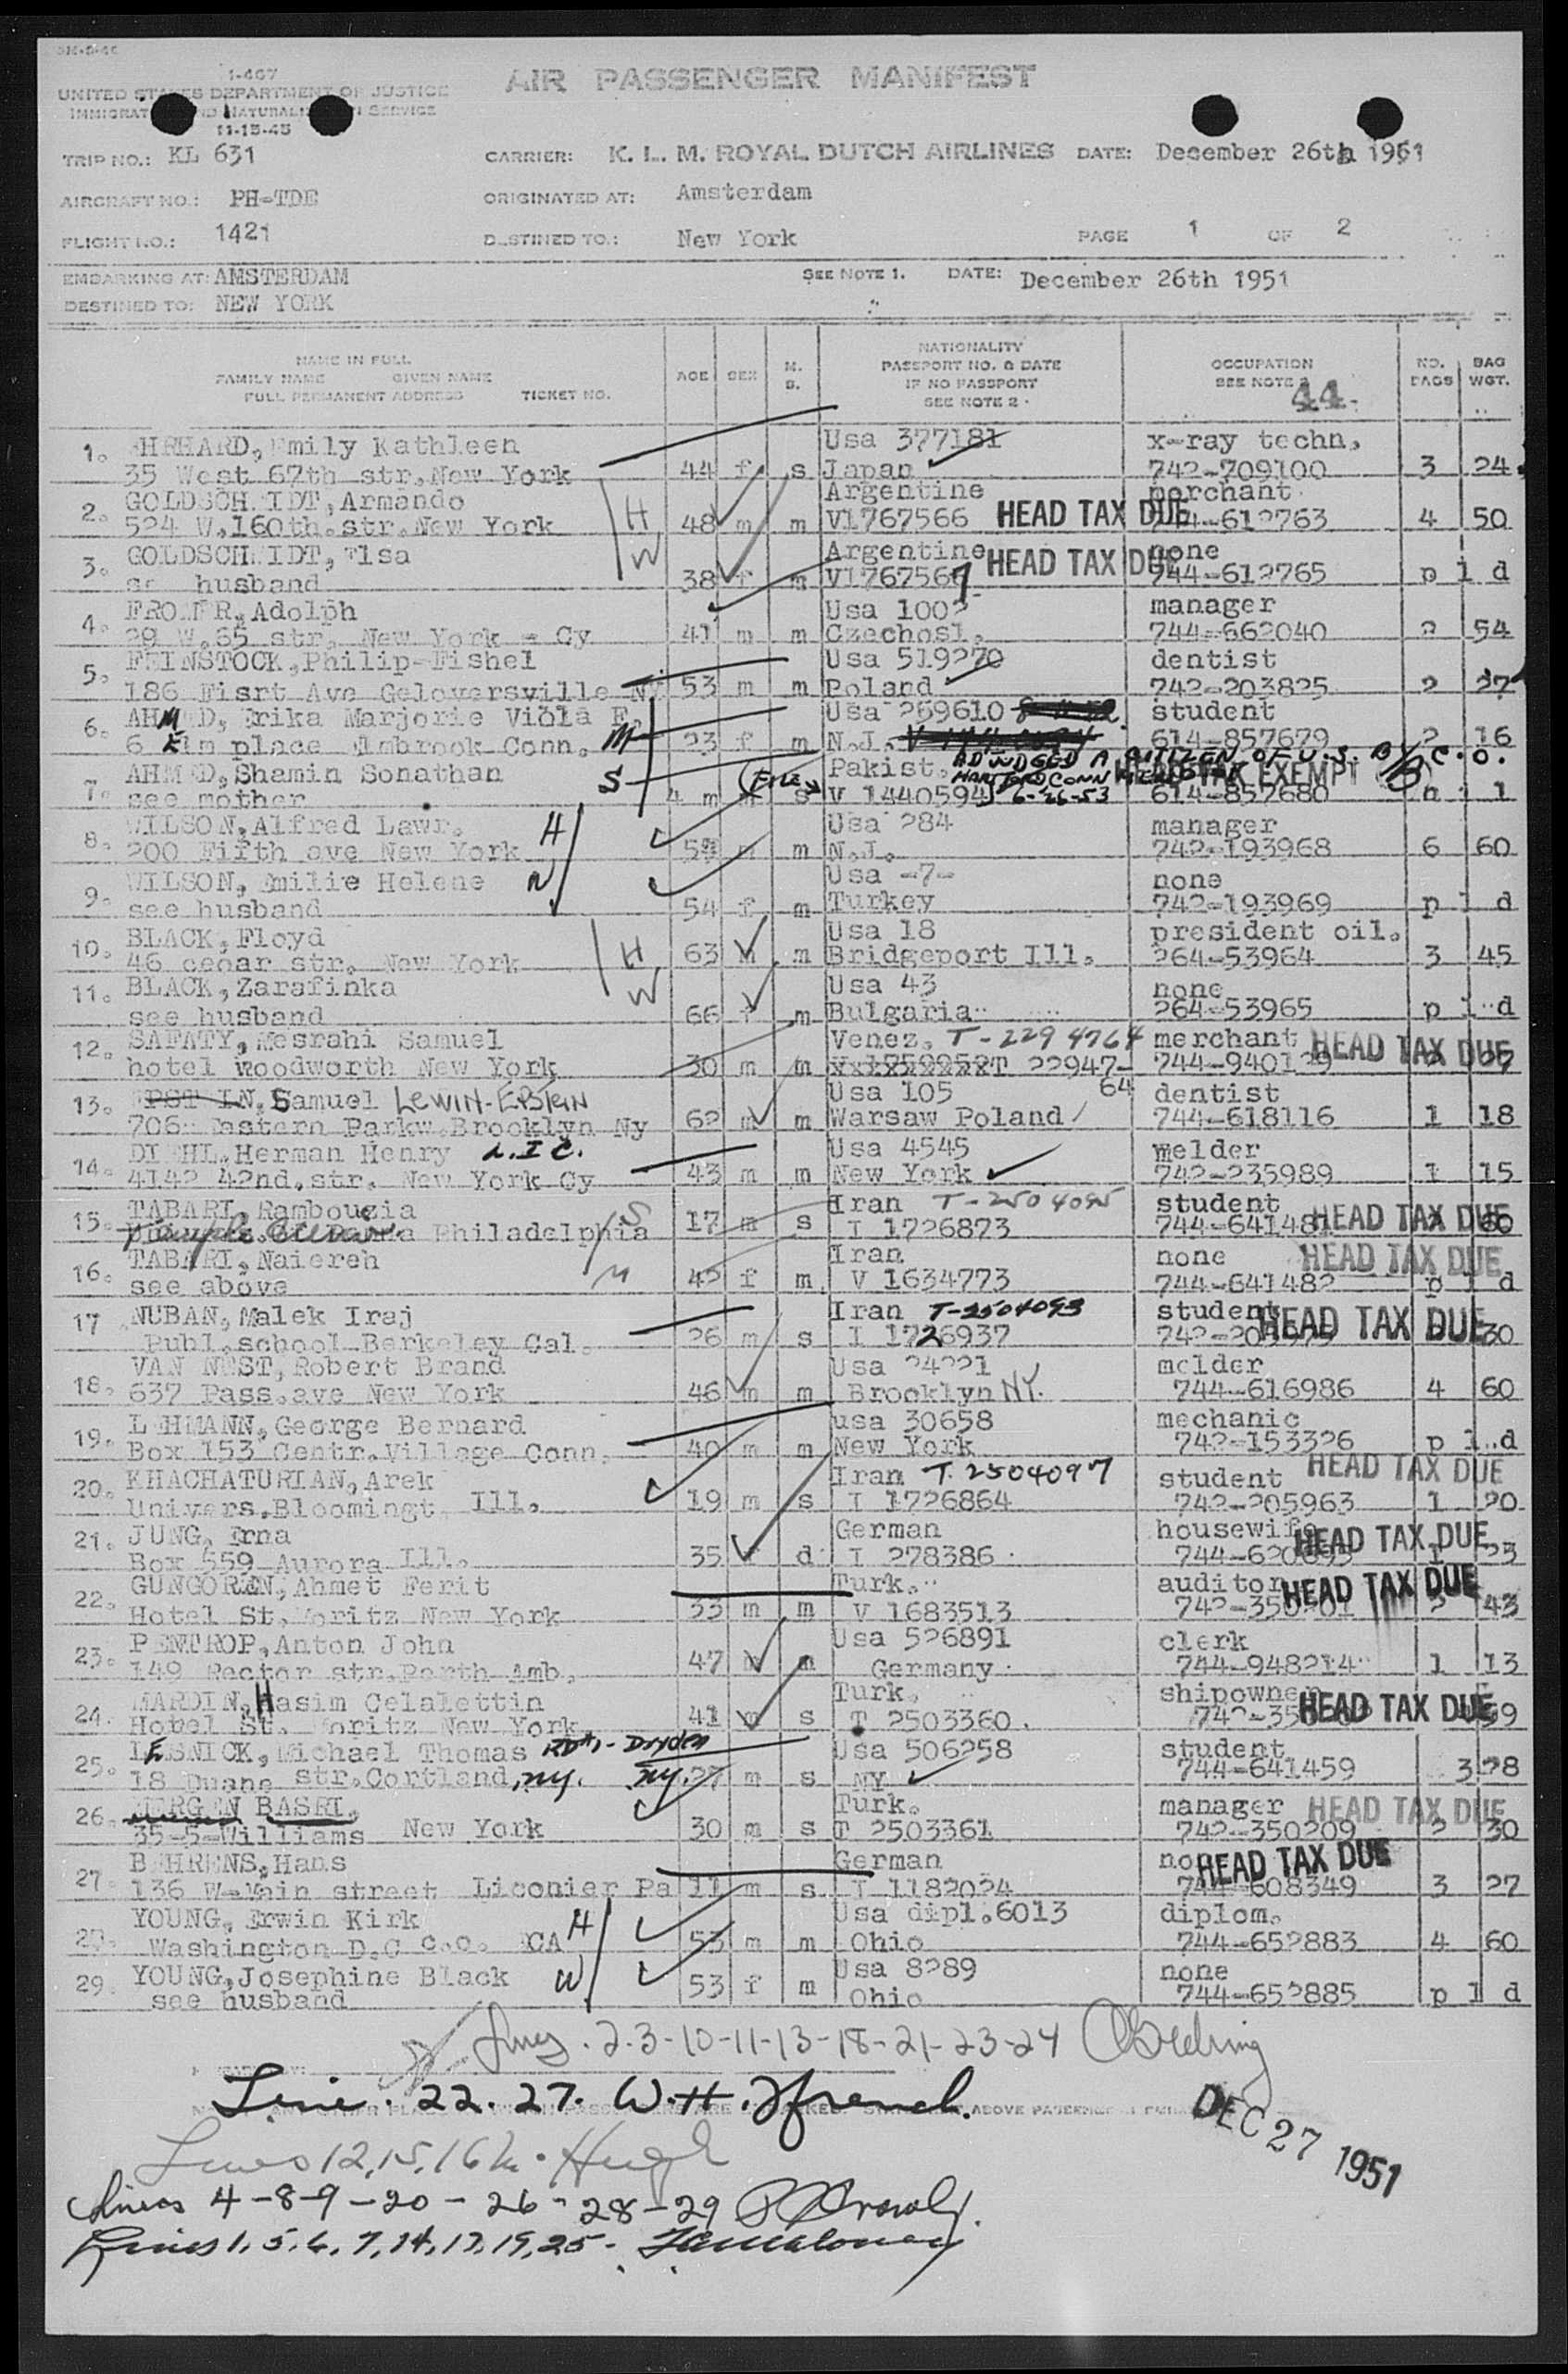 1-467
UNITED STATES DEPARTMENT OF JUSTICE
AIR PASSENGER MANIFEST
11-15-45
TRIP NO.: KL 631 CARRIER: K. L. M. ROYAL DUTCH AIRLINES DATE: December 26th 1951
AIRCRAFT NO.: PH-TDE ORIGINATED AT: Amsterdam
FLIGHT NO.: 1421 DESTINED TO.: New York PAGE 1 OF 2
EMBARKING AT: AMSTERDAM SEE NOTE 1. DATE: December 26th 1951
DESTINED TO: NEW YORK
NAME IN FULL
FAMILY NAME GIVEN NAME
FULL PERMANENT ADDRESS TICKET NO.
AGE SEX M. S.
NATIONALITY
PASSPORT NO. & DATE
IF NO PASSPORT
SEE NOTE 2
OCCUPATION
SEE NOTE
44.
NO. BAGS BAG WGT.
1. EHRHARD, Emily Kathleen Usa 377181 x-ray techn.
35 West 67th str. New York 44 f s Japan 742-709100 3 24
2. GOLDSCHMIDT, Armando Argentine merchant
524 W.160th.str.New York H 48 m m V1767566 HEAD TAX DUE 744-612763 4 50
3. GOLDSCHMIDT, Elsa Argentine none
husband W 38 f m V1767567 HEAD TAX DUE 744-612765 p l d
4. FROMER, Adolph Usa 1002 manager
29 W.65 str. New York - Cy 41 m m Czechosl. 744-662040 2 54
5. FEINSTOCK, Philip-Fishel Usa 519270 dentist
186 Fisrt Ave Geloversville NY 53 m m Poland 742-203825 2 27
6. AHMED, Erika Marjorie Viola F. Usa 269610 student
6 Elm place Conn. M 23 f m N.J. 614-857679 2 16
ADJUDGED A CITIZEN OF U.S. BY C.O.
7. AHMED, Shamin Sonathan S Pakist. HARTFORD CONN HEAD TAX EXEMPT
see mother (FILE 4 m s V 1440594 6-26-53 614-857680 n i l
8. WILSON, Alfred Lawr. H Usa 284 manager
200 Fifth ave New York m N.J. 742-193968 6 60
9. WILSON, Emilie Helene W Usa -7- none
see husband 54 f m Turkey 742-193969 p l d
10. BLACK, Floyd Usa 18 president oil.
46 cedar str. New York H 63 m m Bridgeport Ill. 264-53964 3 45
11. BLACK, Zarafinka W Usa 43 none
see husband 66 f m Bulgaria 264-53965 p l d
12. SAFATY, Mesrahi Samuel Venez. T-2294764 merchant HEAD TAX DUE
hotel woodworth New York 30 m m T 22947-64 744-940129 27
13. Samuel LEWIN-EPSTEIN Usa 105 dentist
706 Eastern Parkw.Brooklyn Ny 62 m m Warsaw Poland 744-618116 1 18
14. DIEHL, Herman Henry L.I.C. Usa 4545 welder
4142 42nd.str. New York Cy 43 m m New York 742-235989 1 15
15. TABARI, Rambouzia S Iran T-2504095 student
Philadelphia 17 m s I 1726873 744-641481 HEAD TAX DUE 60
16. TABARI, Naiereh M Iran none HEAD TAX DUE
see above 45 f m V 1634773 744-641482 p l d
17 NUBAN, Malek Iraj Iran T-2504093 student HEAD TAX DUE
Publ.school Berkeley Cal. 26 m s I 1726937 30
18. VAN NEST, Robert Brand Usa 24221 molder
637 Pass.ave New York 46 m m Brooklyn NY. 744-616986 4 60
19. LEHMANN, George Bernard usa 30658 mechanic
Box 153 Centr.Village Conn. 40 m m New York 742-153326 p l d
20. KHACHATURIAN, Arek Iran T. 2504097 student HEAD TAX DUE
Univers.Bloomingt. Ill. 19 m s I 1726864 742-205963 1 20
21. JUNG, Erna German housewife HEAD TAX DUE
Box 559 Aurora Ill. 35 d I 278386 1 23
22. GUNGOREN, Ahmet Ferit Turk. auditor HEAD TAX DUE
Hotel St.Moritz New York 33 m m V 1683513 2 43
23. PENTROP, Anton John Usa 526891 clerk
149 Rector str.Perth Amb. 47 m m Germany 744-948214 1 13
24. MARDIN, Hasim Celalettin Turk. shipowner HEAD TAX DUE
Hotel St. Moritz New York 41 m s T 2503360
25. LESNICK, Michael Thomas RD#1 - Dryden Usa 506258 student
18 Duane str.Cortland, NY. NY. 27 m s NY 744-641459 3 28
26. BASRI, Turk. manager HEAD TAX DUE
35-5-Williams New York 30 m s T 2503361 742-350209 2 30
27. BEHRENS, Hans German none HEAD TAX DUE
136 W-Main street Liconier Pa 11 m s I 1182024 744-608349 3 27
28. YOUNG, Erwin Kirk H Usa dipl.6013 diplom.
Washington D.C c.o. ECA 53 m m Ohio 744-652883 4 60
29. YOUNG, Josephine Black W Usa 8289 none
see husband 53 f m Ohio 744-652885 p l d
Lines. 2-3-10-11-13-18-21-23-24
Line. 22. 27. W. H. French.
DEC 27 1951
Lines 12, 15, 16
Lines 4-8-9-20-26-28-29
Lines 1, 5, 6, 7, 14, 17, 19, 25-